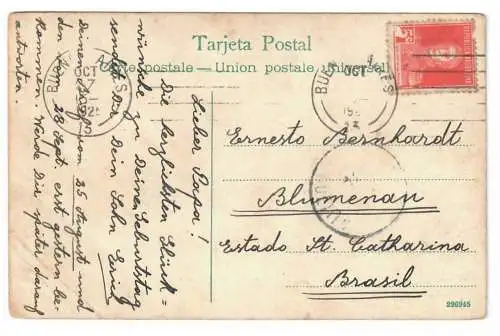 Tarjeta Postal
Carte postale — Union postale universelle
BUENOS AIRES
OCT
7
192
BUENOS AIRES
OCT
7
192
Lieber Papa!
Die herzlichsten Glück=
wünsche zu Deinem Geburtstag
sendet Dir Dein Sohn Erich
Deinen Brief vom 25 August und
den vom 28 Sept. erst gestern be-
kommen. Werde Dir später darauf
antworten.
Ernesto Bernhardt
Blumenau
Estado St. Catharina
Brasil
296965